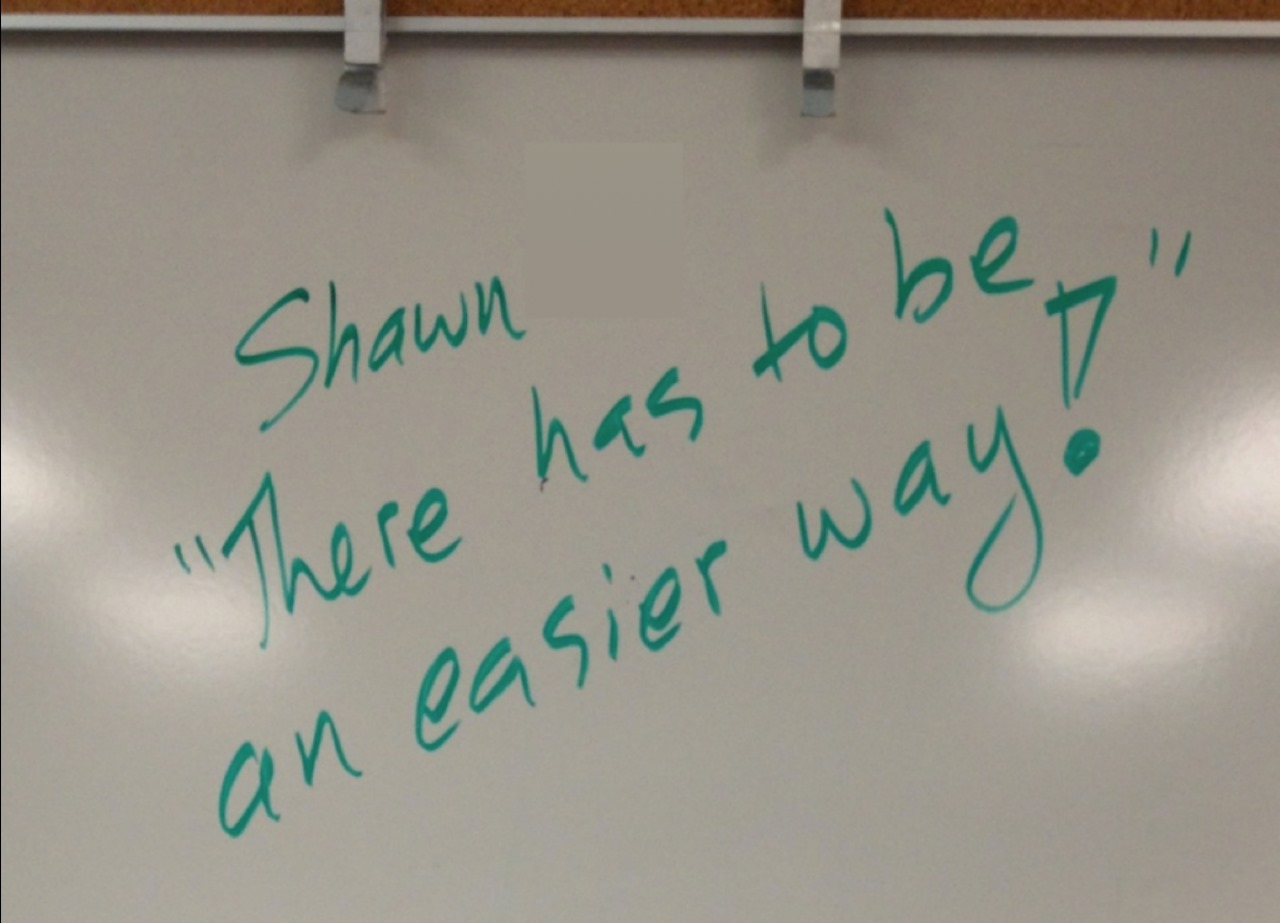 Shawn
"There has to be
an easier way!"